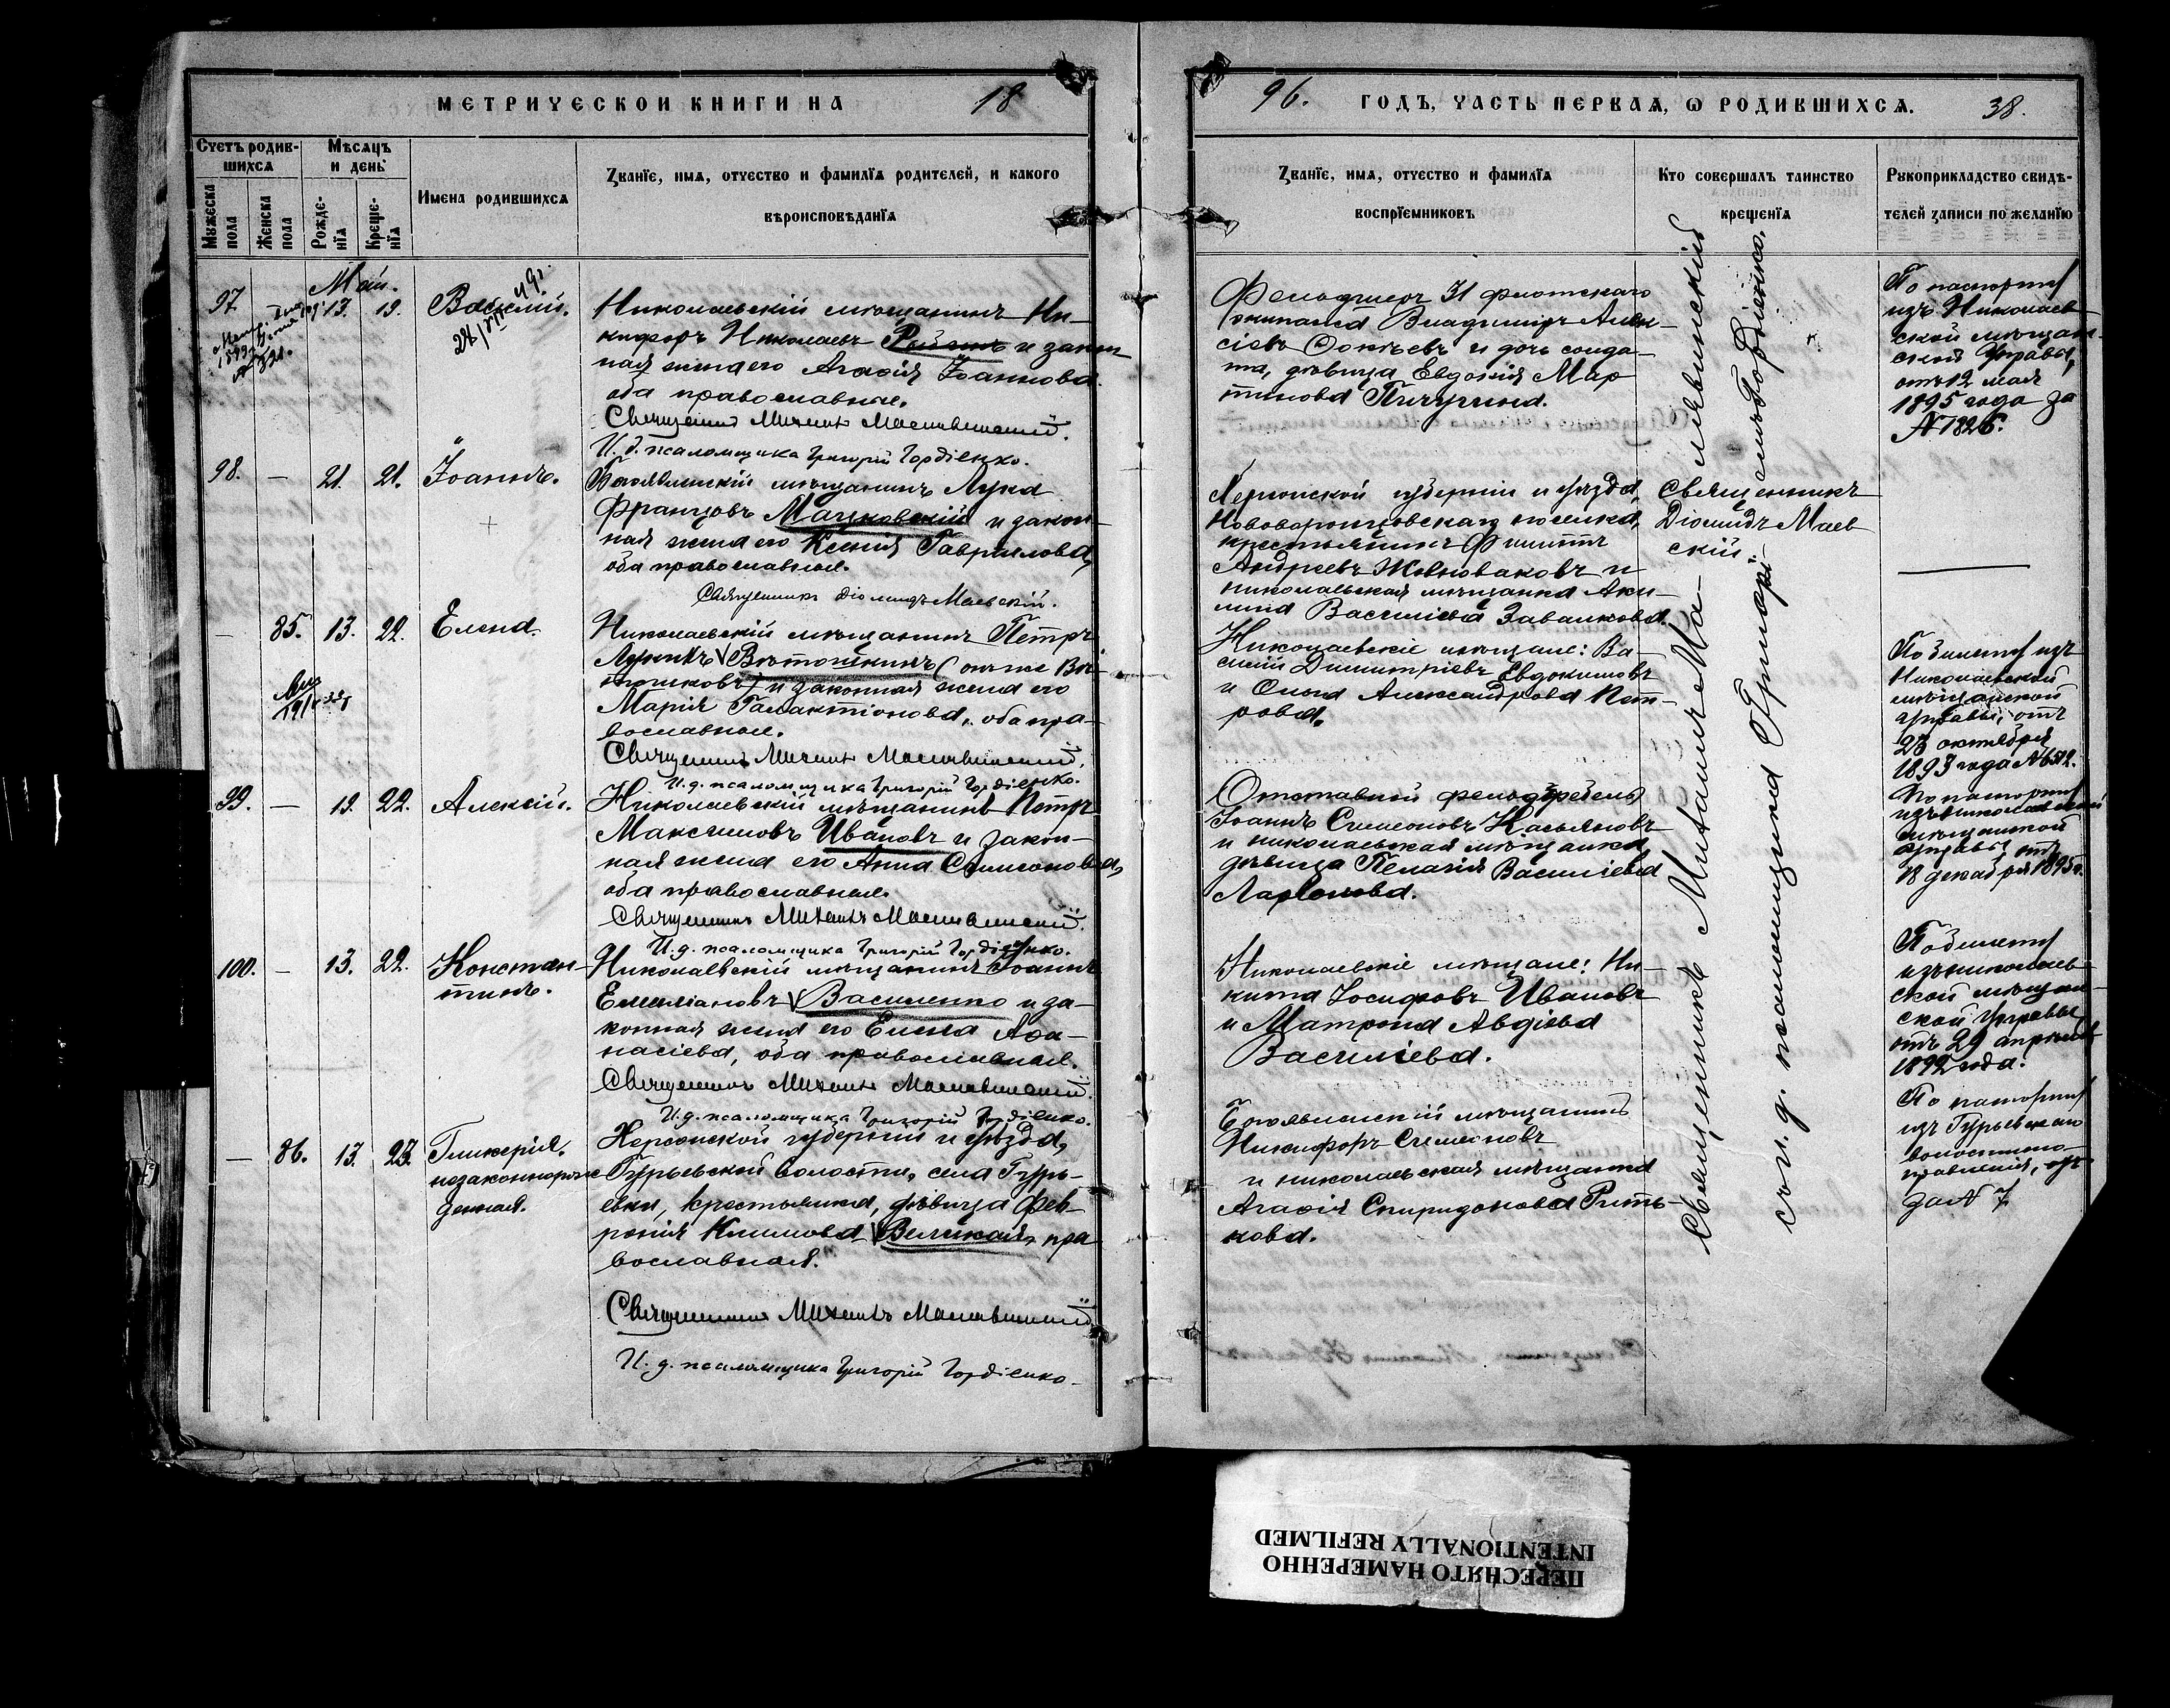 МЕТРИЧЕСКОЙ КНИГИ НА 18
96. ГОДЪ, ЧАСТЬ ПЕРВАЯ, Ѡ РОДИВШИХСЯ. 38.
Счетъ родив-
шихся
Мѣсяцъ
и день
Мужеска
пола
Женска
пола
Рожде-
нія
Креще-
нія
Имена родившихся
Званіе, имя, отчество и фамилія родителей, и какого
вѣроисповѣданія
Званіе, имя, отчество и фамилія
воспріемниковъ
Кто совершалъ таинство
крещенія
Рукоприкладство свидѣ-
телей записи по желанію
Май.
97. 13. 19. Василій.
Николаевскій мѣщанинъ Ни-
кифоръ Николаевъ и закон
ная жена его Агаѳія Іоаннова
оба православные.
Священникъ Михаилъ Маслевинскій.
И. д. псаломщика Григорій Гордіенко.
Фельдшеръ 31 флотскаго
экипажа Владиміръ Алек-
сіевъ и дочь солда-
та, дѣвица Евдокія Мар
тинова Пичугина.
По паспорту
изъ Николаев-
ской мѣщан-
ской Управы,
отъ 12 мая
1895 года за
№ 1826.
98. — 21. 21. Іоаннъ.
Богоявленскій мѣщанинъ Лука
Францовъ Мацковскій и закон-
ная жена его Ксенія Гаврилова,
оба православные.
Священникъ Діомидъ Маевскій.
Херсонской губерніи и уѣзда,
Нововоронцовскаго поселка,
крестьянинъ Филиппъ
Андреевъ и
николаевская мѣщанка Аки-
лина Василіева Завалкова.
Священникъ
Діомидъ Маев
скій.
— 85. 13. 22. Елена.
Николаевскій мѣщанинъ Петръ
Лукинъ Вѣтошкинъ (онъ же Вѣ-
тошковъ) и законная жена его
Марія Галактіонова, оба пра-
вославные.
Священникъ Михаилъ Маслевинскій.
И. д. псаломщика Григорій Гордіенко.
Николаевскіе мѣщане: Ва-
силій Димитріевъ Евдокимовъ
и Ольга Александрова Пет-
рова.
По билету изъ
Николаевской
мѣщанской
управы, отъ
23 октября
1893 года
99. — 19. 22. Алексій.
Николаевскій мѣщанинъ Петръ
Максимовъ Ивановъ и закон-
ная жена его Анна Симеонова,
оба православные.
Священникъ Михаилъ Маслевинскій.
И. д. псаломщика Григорій Гордіенко.
Отставной фельдфебель
Іоаннъ Симеоновъ Касьяновъ
и николаевская мѣщанка
дѣвица Пелагія Василіева
Ларіонова.
По паспорту
изъ николаевской
мѣщанской
управы отъ
18 декабря 1895 г.
100. — 13. 22. Констан-
тинъ.
Николаевскій мѣщанинъ Іоаннъ
Емиліановъ Василенко и за-
конная жена его Елена Аѳа-
насіева, оба православные.
Священникъ Михаилъ Маслевинскій.
И. д. псаломщика Григорій Гордіенко.
Николаевскіе мѣщане: Ни-
кита Іосифовъ Ивановъ
и Матрона Авдіева
Василіева.
По билету
изъ николаев-
ской мѣщан-
ской управы,
отъ 29 апрѣля
1892 года.
— 86. 13. 23. Гликерія,
незаконнорож-
денная.
Херсонской губерніи и уѣзда,
Гурьевской волости, села Гурь-
евки, крестьянка, дѣвица Фев-
ронія Климова Великая, пра
вославная.
Священникъ Михаилъ Маслевинскій
И. д. псаломщика Григорій Гордіенко.
Богоявленскій мѣщанинъ
Никифоръ Симеоновъ
и николаевская мѣщанка
Агаѳія Спиридонова Рить-
кова.
По паспорту
изъ Гурьевскаго
волостного
правленія,
за № 7
Священникъ Михаилъ Ма-
слевинскій
съ и. д. псаломщика Григорі-
емъ Гордіенко.
ПЕРЕСНЯТО НАМЕРЕННО
INTENTIONALLY REFILMED